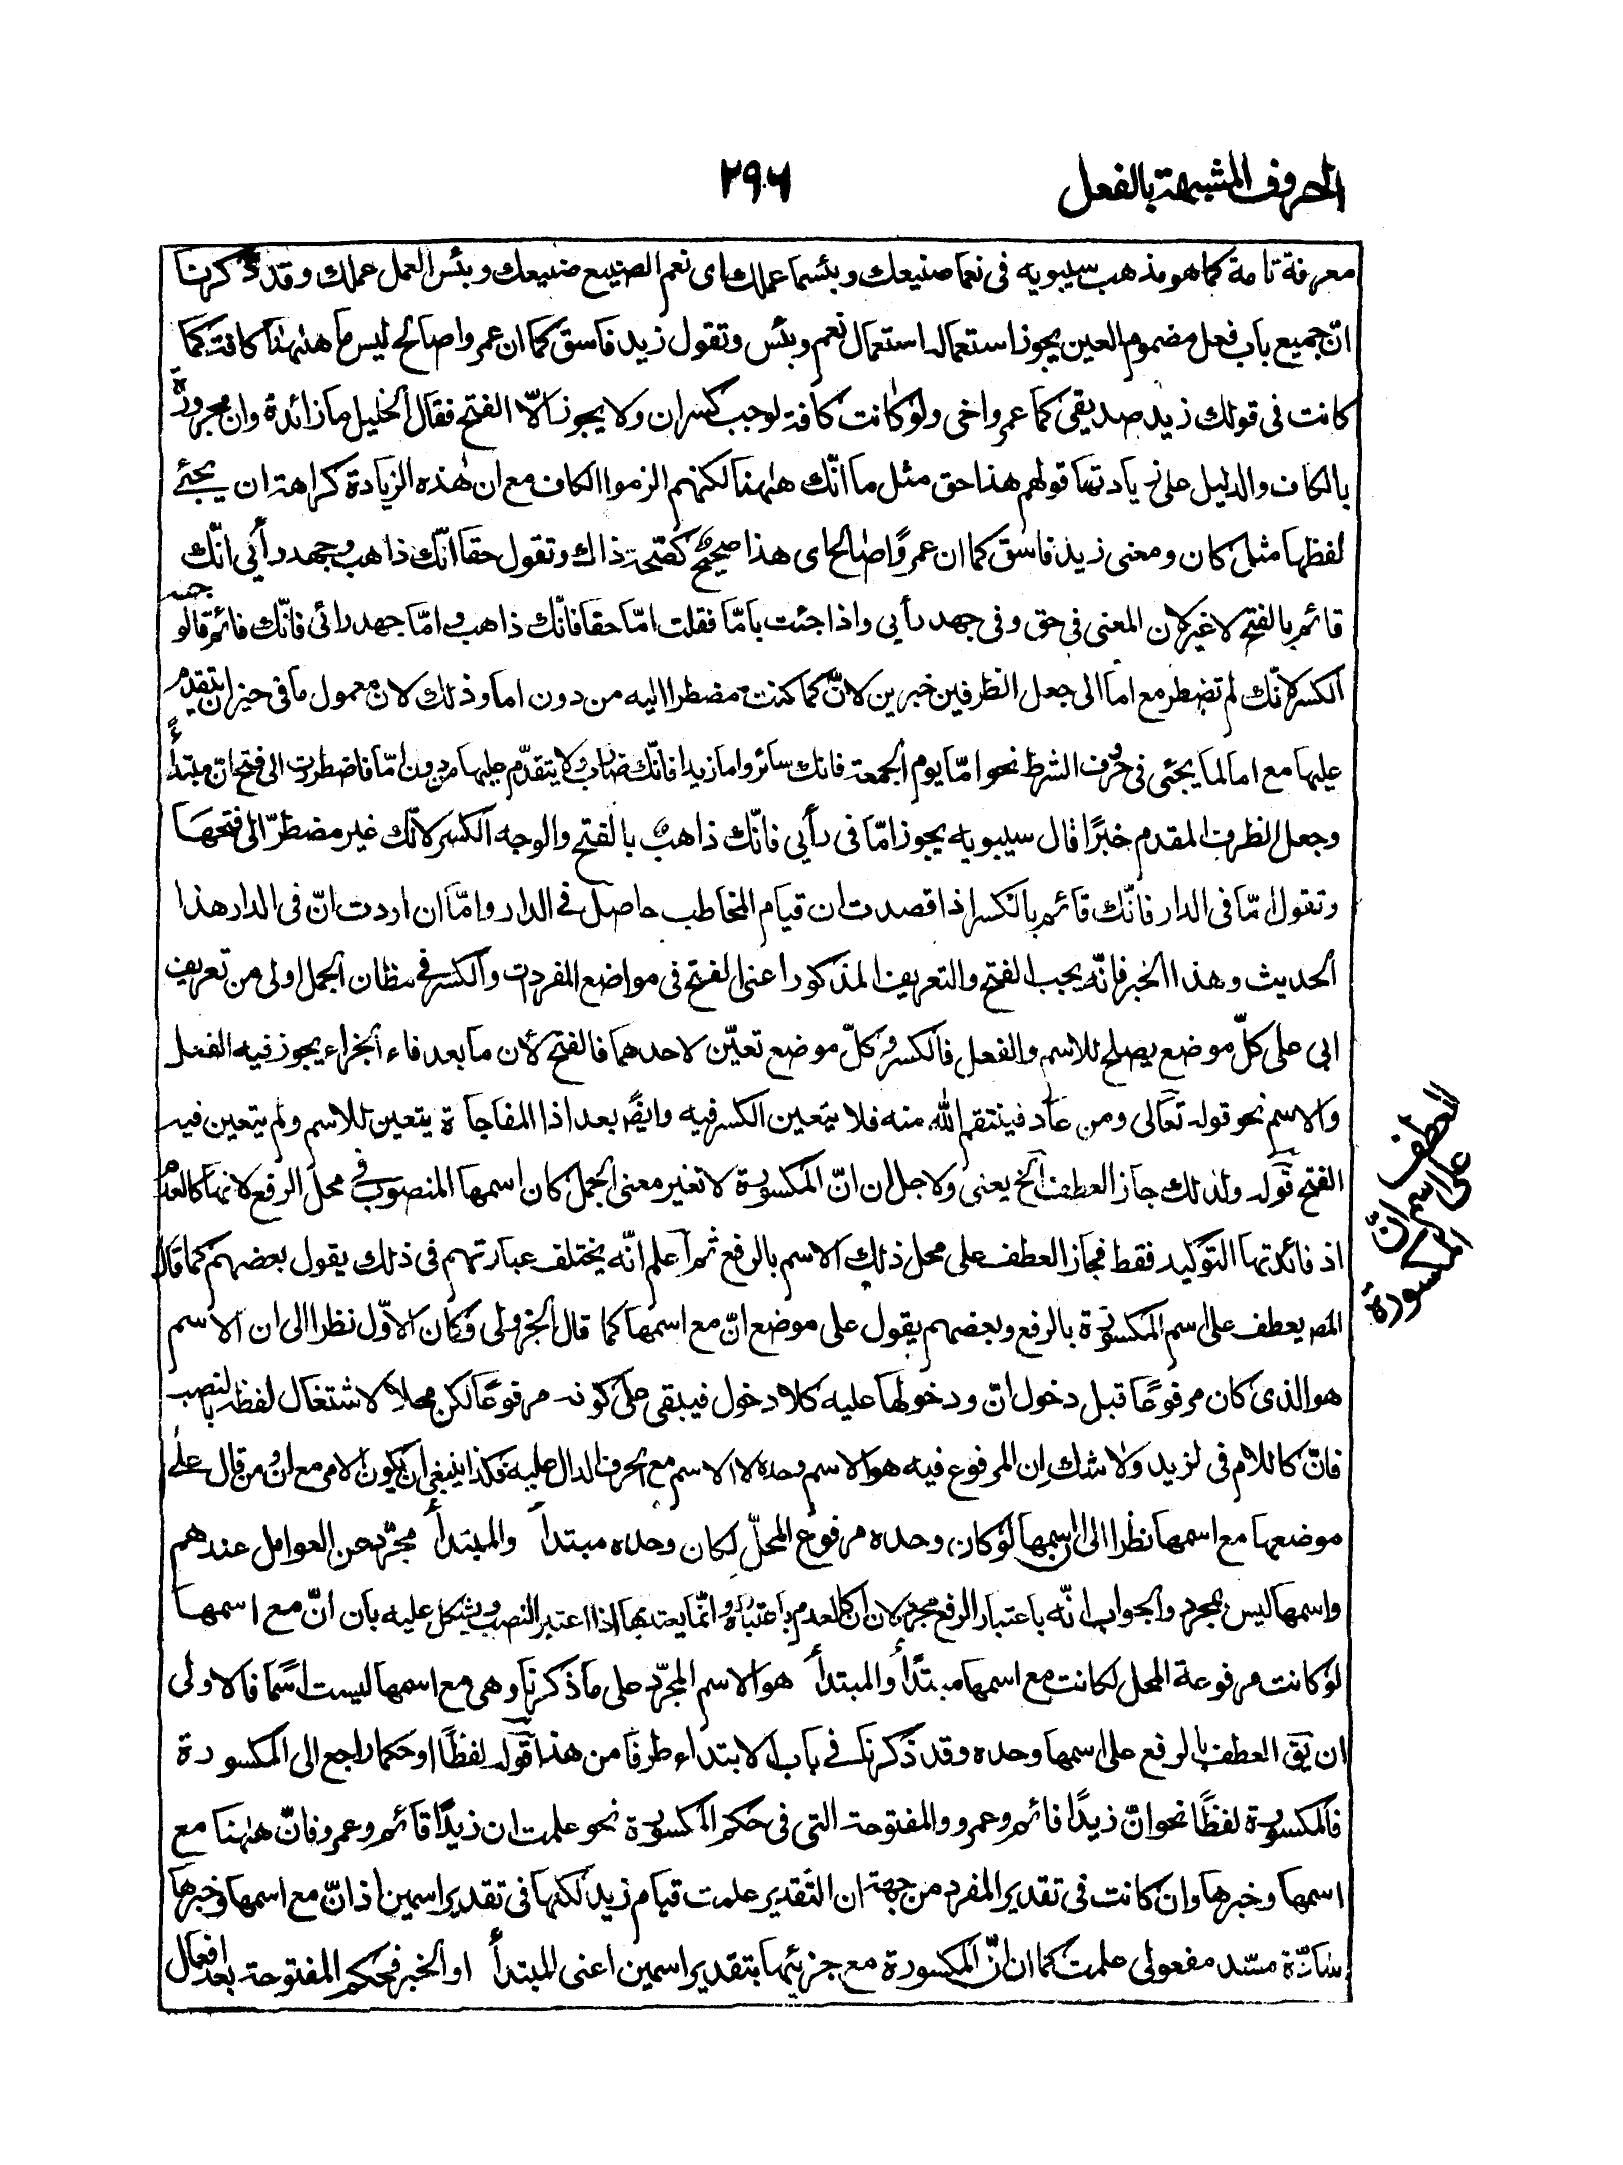 الحروف المشبهة بالفعل
٢٩٦
معرفة تامة كما هو مذهب سيبويه فى نعما صنيعك وبئسما عملك اى نعم الصنيع صنيعك وبئس العمل عملك وقد ذكرنا
انّ جميع باب فعل مضموم العين يجوز استعماله استعمال نعم وبئس وتقول زيد فاسق كما ان عمروا صالح ليس ما ههنا كافة كما
كانت فى قولك زيد صديقى كما عمرو اخى ولو كانت كافة لوجب كسر ان ولا يجوز الّا الفتح فقال الخليل ما زائدة وان مجرورة
بالكاف والدليل على زيادتها قولهم هذا حق مثل ما انّك ههنا لكنهم الزموا الكاف مع ان هذه الزيادة كراهة ان يجئ
لفظها مثل كان ومعنى زيد فاسق كما ان عمرًوا صالح اى هذا صحيح كصحة ذاك وتقول حقا انّك ذاهب وجهد رأيى انّك
قائم بالفتح لا غير لان المعنى فى حق وفى جهد رأيى واذا جئت بامّا فقلت امّا حقا فانّك ذاهب وامّا جهد رائى فانّك قائم فالوجه
الكسر لانّك لم تضطر مع اما الى جعل الظرفين خبرين لانّ كما كنت مضطرا اليه من دون اما وذلك لان معمول ما فى حيز ان يتقدم
عليها مع اما لما يجئى فى حروف الشرط نحو امّا يوم الجمعة فانك سائر واما زيدا فانّك ضارب ولا يتقدّم عليها من دون امّا فاضطررت الى فتح انّ مبتدأً
وجعل الظرف المقدم خبرًا قال سيبويه يجوز امّا فى رأيى فانّك ذاهب بالفتح والوجه الكسر لانّك غير مضطرّ الى فتحها
وتقول امّا فى الدار فانّك قائم بالكسر اذا قصدت ان قيام المخاطب حاصل فى الدار وامّا ان اردت انّ فى الدار هذا
الحديث وهذا الخبر فانّه يجب الفتح والتعريف المذكور اعنى الفتح فى مواضع المفردات والكسر فى مظان الجمل اولى من تعريف
ابى على كلّ موضع يصلح للاسم والفعل فالكسر وكلّ موضع تعيّن لاحدهما فالفتح لأن ما بعد فاء الجزاء يجوز فيه الفعل
والاسم نحو قوله تعالى ومن عاد فينتقم الله منه فلا يتعين الكسر فيه وايضًا بعد اذا المفاجاة يتعين للاسم ولم يتعين فيه
الفتح قوله ولذلك جاز العطف الخ يعنى ولاجل ان انّ المكسورة لا تغير معنى الجمل كان اسمها المنصوب فى محل الرفع لانها كالعدم
اذ فائدتها التوكيد فقط فجاز العطف على محل ذلك الاسم بالرفع ثم اعلم انّه يختلف عبارتهم فى ذلك يقول بعضهم كما قال
المص يعطف على اسم المكسورة بالرفع وبعضهم يقول على موضع انّ مع اسمها كما قال الجزولى وكان الاوّل نظرا الى ان الاسم
هو الذى كان مرفوعًا قبل دخول انّ ودخولها عليه كلا دخول فيبقى على كونه مرفوعًا لكن محلا لاشتغال لفظه بالنصب
فانّ كاللام فى لزيد ولا شك ان المرفوع فيه هو الاسم وحده لا الاسم مع الحرف الدال عليه فكذا ينبغى ان يكون الامر مع ان ومن قال على
موضعها مع اسمها نظرا الى ان اسمها لو كان وحده مرفوع المحلّ لكان وحده مبتدأ والمبتدأ مجرّد عن العوامل عندهم
واسمها ليس بمجرد والجواب انّه باعتبار الرفع مجرد لان انّ كالعدم باعتباره وانّما يعتد بها اذا اعتبر النصب ويشكل عليه بان انّ مع اسمها
لو كانت مرفوعة المحل لكانت مع اسمها مبتدأً والمبتدأ هو الاسم المجرّد على ما ذكرنا وهى مع اسمها ليست اسمًا فالاولى
ان يق العطف بالرفع على اسمها وحده وقد ذكرنا فى باب الابتداء طرفًا من هذا قوله لفظًا او حكما راجع الى المكسورة
فالمكسورة لفظًا نحو انّ زيدًا قائم وعمرو والمفتوحة التى فى حكم المكسورة نحو علمت ان زيدًا قائم وعمرو فانّ ههنا مع
اسمها وخبرها وان كانت فى تقدير المفرد من جهة ان التقدير علمت قيام زيد لكنها فى تقدير اسمين اذ انّ مع اسمها وخبرها
سادّة مسّد مفعولى علمت كما ان انّ المكسورة مع جزئيها بتقدير اسمين اعنى المبتدأ او الخبر فحكم المفتوحة بعد افعال
العطف
على اسم انّ
المكسورة